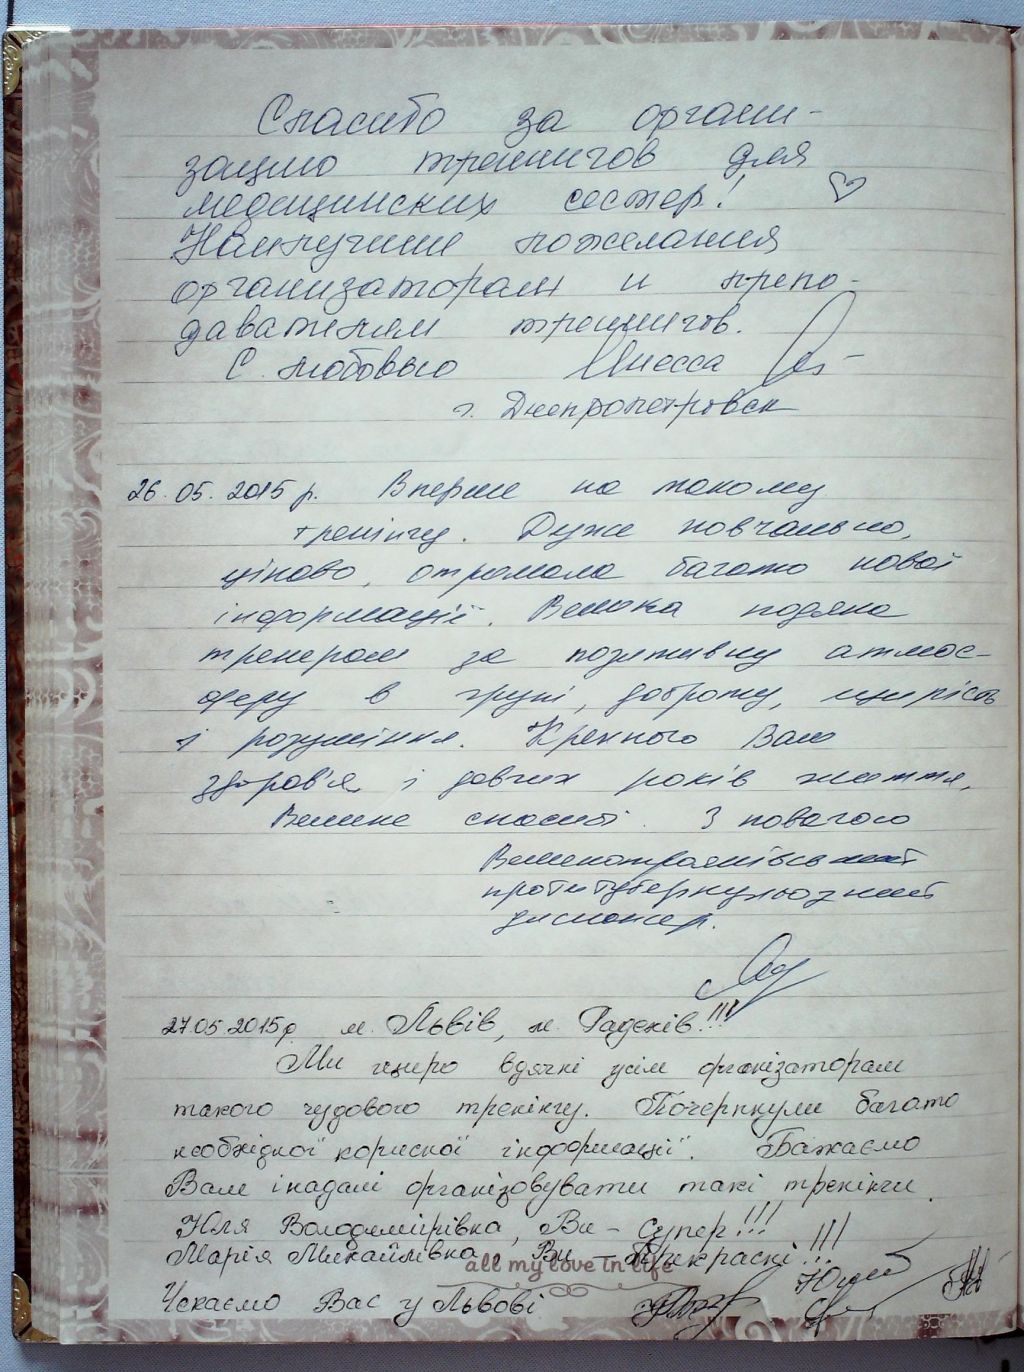 Спасибо за органи-
зацию тренингов для
медицинских сестер!
Наилучшие пожелания
организаторам и препо-
давателям тренингов.
С любовью Инесса
г. Днепропетровск
26.05.2015 р. Вперше на такому
тренінгу. Дуже повчально,
цікаво, отримала багато нової
інформації. Велика подяка
тренерам за позитивну атмос-
феру в групі, доброту, щирість
і розуміння. Крепкого Вам
здоров'я і довгих років життя.
Велике спасибі. З повагою
протитуберкульозний
диспансер.
27.05.2015р. м. Львів, м. Радехів!!!
Ми щиро вдячні усім організаторам
такого чудового тренінгу. Почерпнули багато
необхідної корисної інформації. Бажаємо
Вам і надалі організовувати такі тренінги.
Юля Володимирівна, Ви - супер!!!
Марія Михайлівна Ви - Прекрасні!!!
all my love in life
Чекаємо Вас у Львові